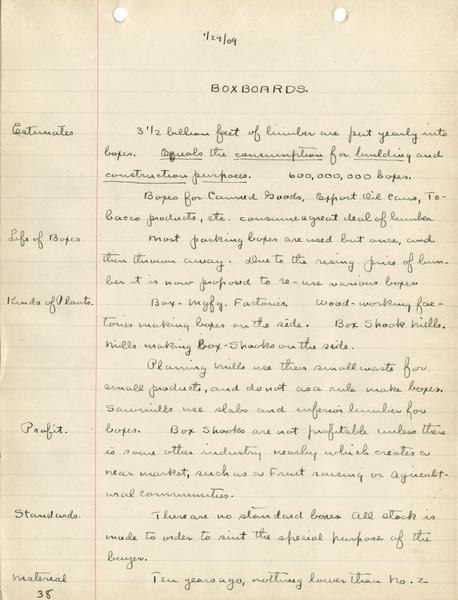 1/29/09
BOXBOARDS.
Estimates 3 1/2 billion feet of lumber are put yearly into
boxes. Equals the consumption for building and
construction purposes. 600,000,000 boxes.
Boxes for Canned Goods, Export Oil Cans, To-
bacco products, etc. consume a great deal of lumber.
Life of Boxes Most packing boxes are used but once, and
then thrown away. Due to the rising price of lum-
ber it is now proposed to re-use various boxes
Kinds of Plants. Box-Mgfg. Factories. Wood-working fac-
tories making boxes on the side. Box Shook Mills.
Mills making Box-Shooks on the side.
Planing Mills use their small waste for
small products, and do not as a rule make boxes.
Sawmills use slabs and inferior lumber for
Profit. boxes. Box Shooks are not profitable unless there
is some other industry nearby which creates a
near market, such as a Fruit raising or Agricult-
ural communities.
Standards. There are no standard boxes. All stock is
made to order to suit the special purpose of the
buyer.
Material Ten years ago, nothing lower than No. 2
38